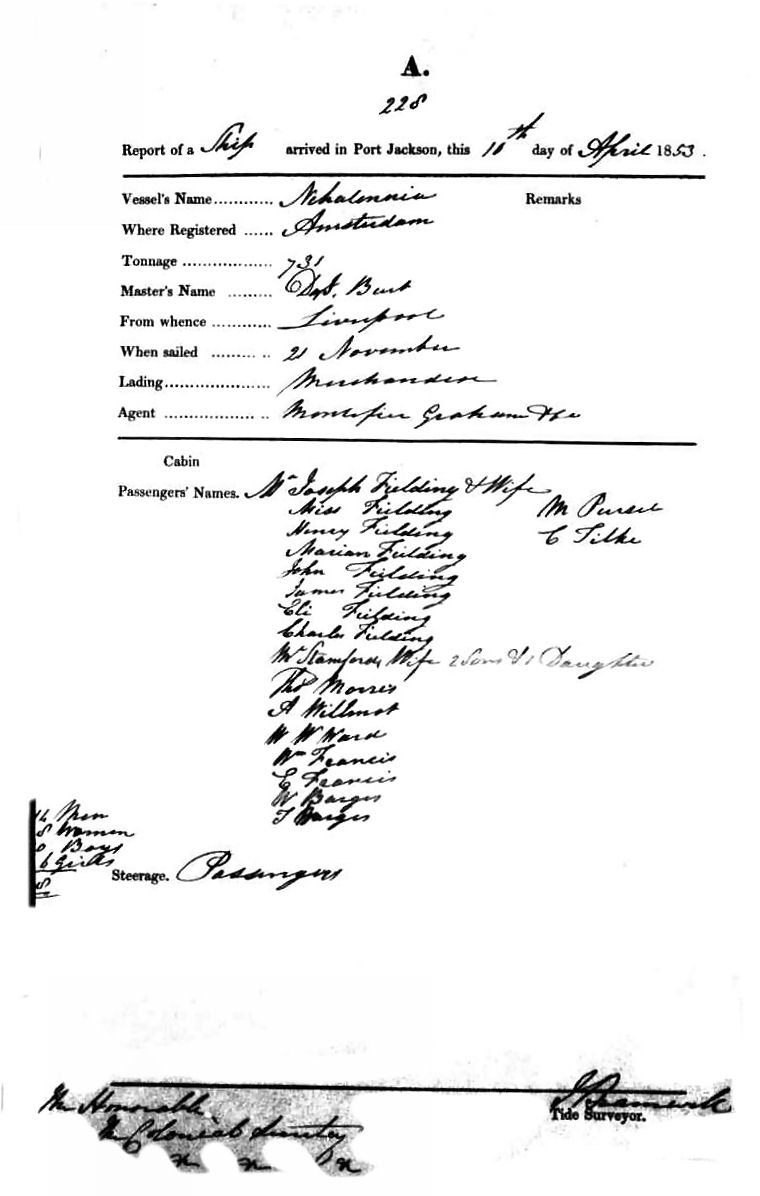 A.
228
Report of a Ship arrived in Port Jackson, this 10th day of April 1853.
Vessel's Name............ Nehalennia Remarks
Where Registered ...... Amsterdam
Tonnage .................. 731
Master's Name ......... Bart
From whence ............ Liverpool
When sailed ......... .. 21 November
Lading..................... Merchandise
Agent .................. .. Montefior Graham & Co
Cabin
Passengers' Names. Mr Joseph Fielding & Wife
Miss Fielding M Pursel
Henry Fielding C Silke
Marian Fielding
John Fielding
James Fielding
Eli Fielding
Charles Fielding
Mr Stamford, Wife 2 Sons & 1 Daughter
Thos Morris
A Willmot
W W Ward
Wm Francis
E Francis
W Barges
T Barges
14 Men
8 Women
0 Boys
6 Girls
8
Steerage. Passengers
The Honorable
The Colonial Secretary
Tide Surveyor.